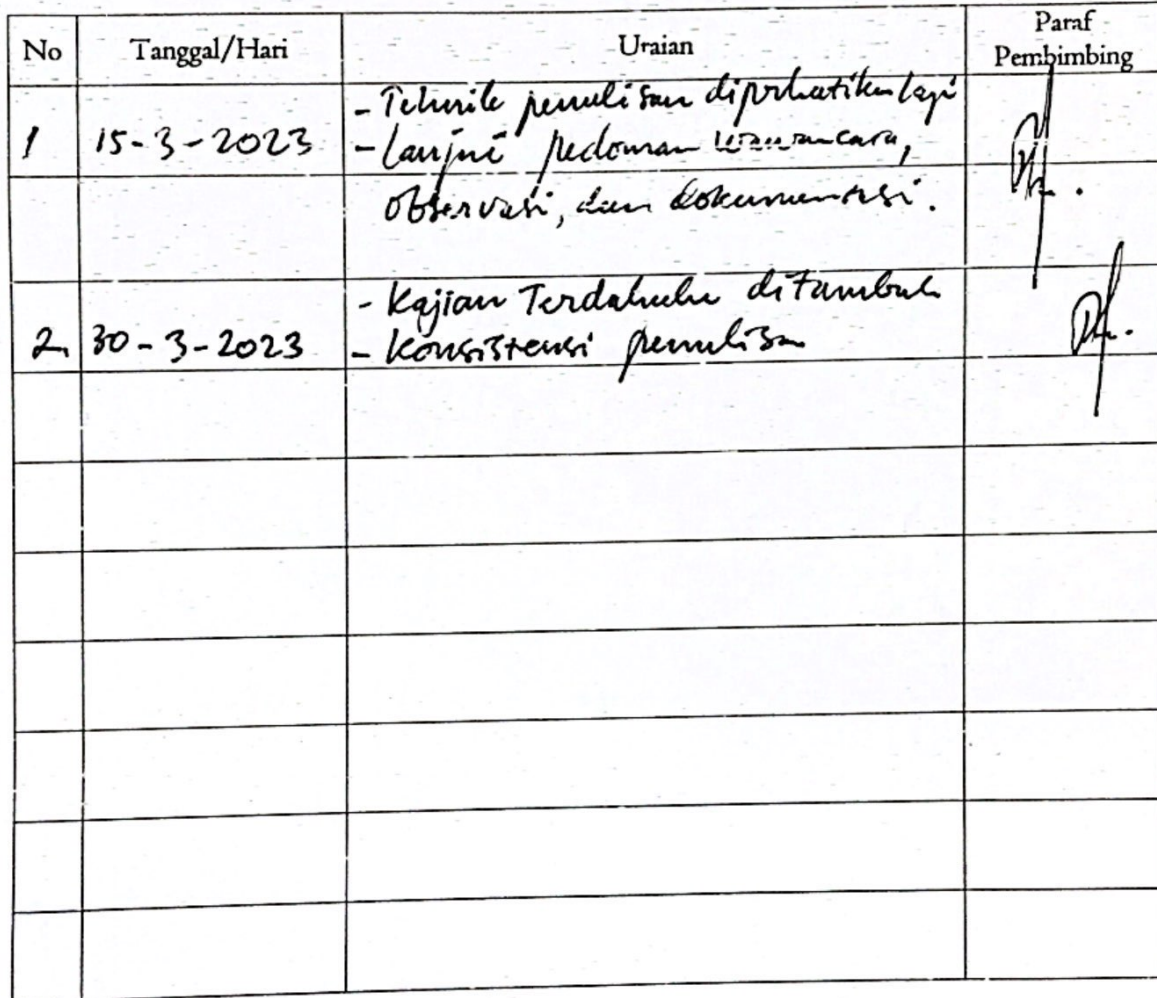 No Tanggal/Hari Uraian Paraf Pembimbing
- Tehnik penulisan diperhatikan lagi
1 15-3-2023 - Lanjut pedoman wawancara,
observasi, dan dokumentasi.
- Kajian Terdahulu ditambah
2. 30-3-2023 - Konsistensi penulisan